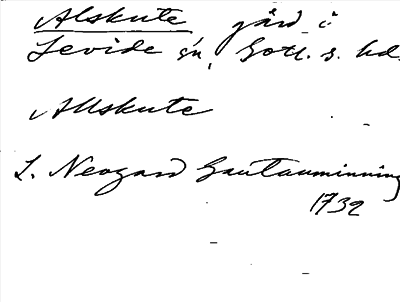 Alskute gård i
Levide sn, Gotl. s. hd.
Allskute
L. Neogard Gautauminning
1732